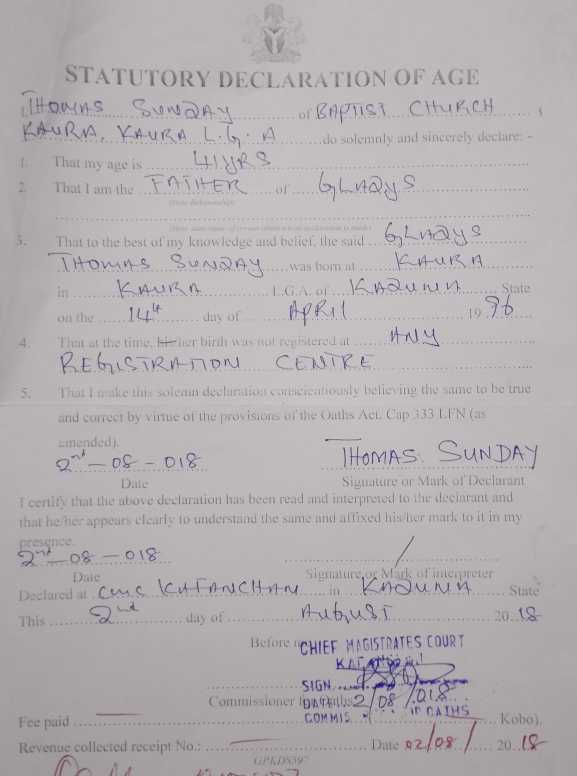 STATUTORY DECLARATION OF AGE
I, THOMAS SUNDAY of BAPTIST CHURCH
KAURA, KAURA L.G.A do solemnly and sincerely declare: -
1. That my age is 41YRS
2. That I am the FATHER of GLADYS
3. That to the best of my knowledge and belief, the said GLADYS
THOMAS SUNDAY was born at KAURA
in KAURA L.G.A. of KADUNA State
on the 14th day of APRIL 1996
4. That at the time, his/her birth was not registered at ANY
REGISTRATION CENTRE
5. That I make this solemn declaration conscientiously believing the same to be true
and correct by virtue of the provisions of the Oaths Act. Cap 333 LFN (as
amended).
2nd-08-018 THOMAS SUNDAY
Date Signature or Mark of Declarant
I certify that the above declaration has been read and interpreted to the declarant and
that he/her appears clearly to understand the same and affixed his/her mark to it in my
presence.
2nd-08-018
Date Signature or Mark of interpreter
Declared at CMC KAFANCHAN in KADUNA State
This 2nd day of AUGUST 2018
Before me
CHIEF MAGISTRATES COURT
SIGN
Commissioner for Oaths
DATE 2/08/018
COMMIS OATHS
Fee paid Kobo).
Revenue collected receipt No.: Date 02/08/ 2018